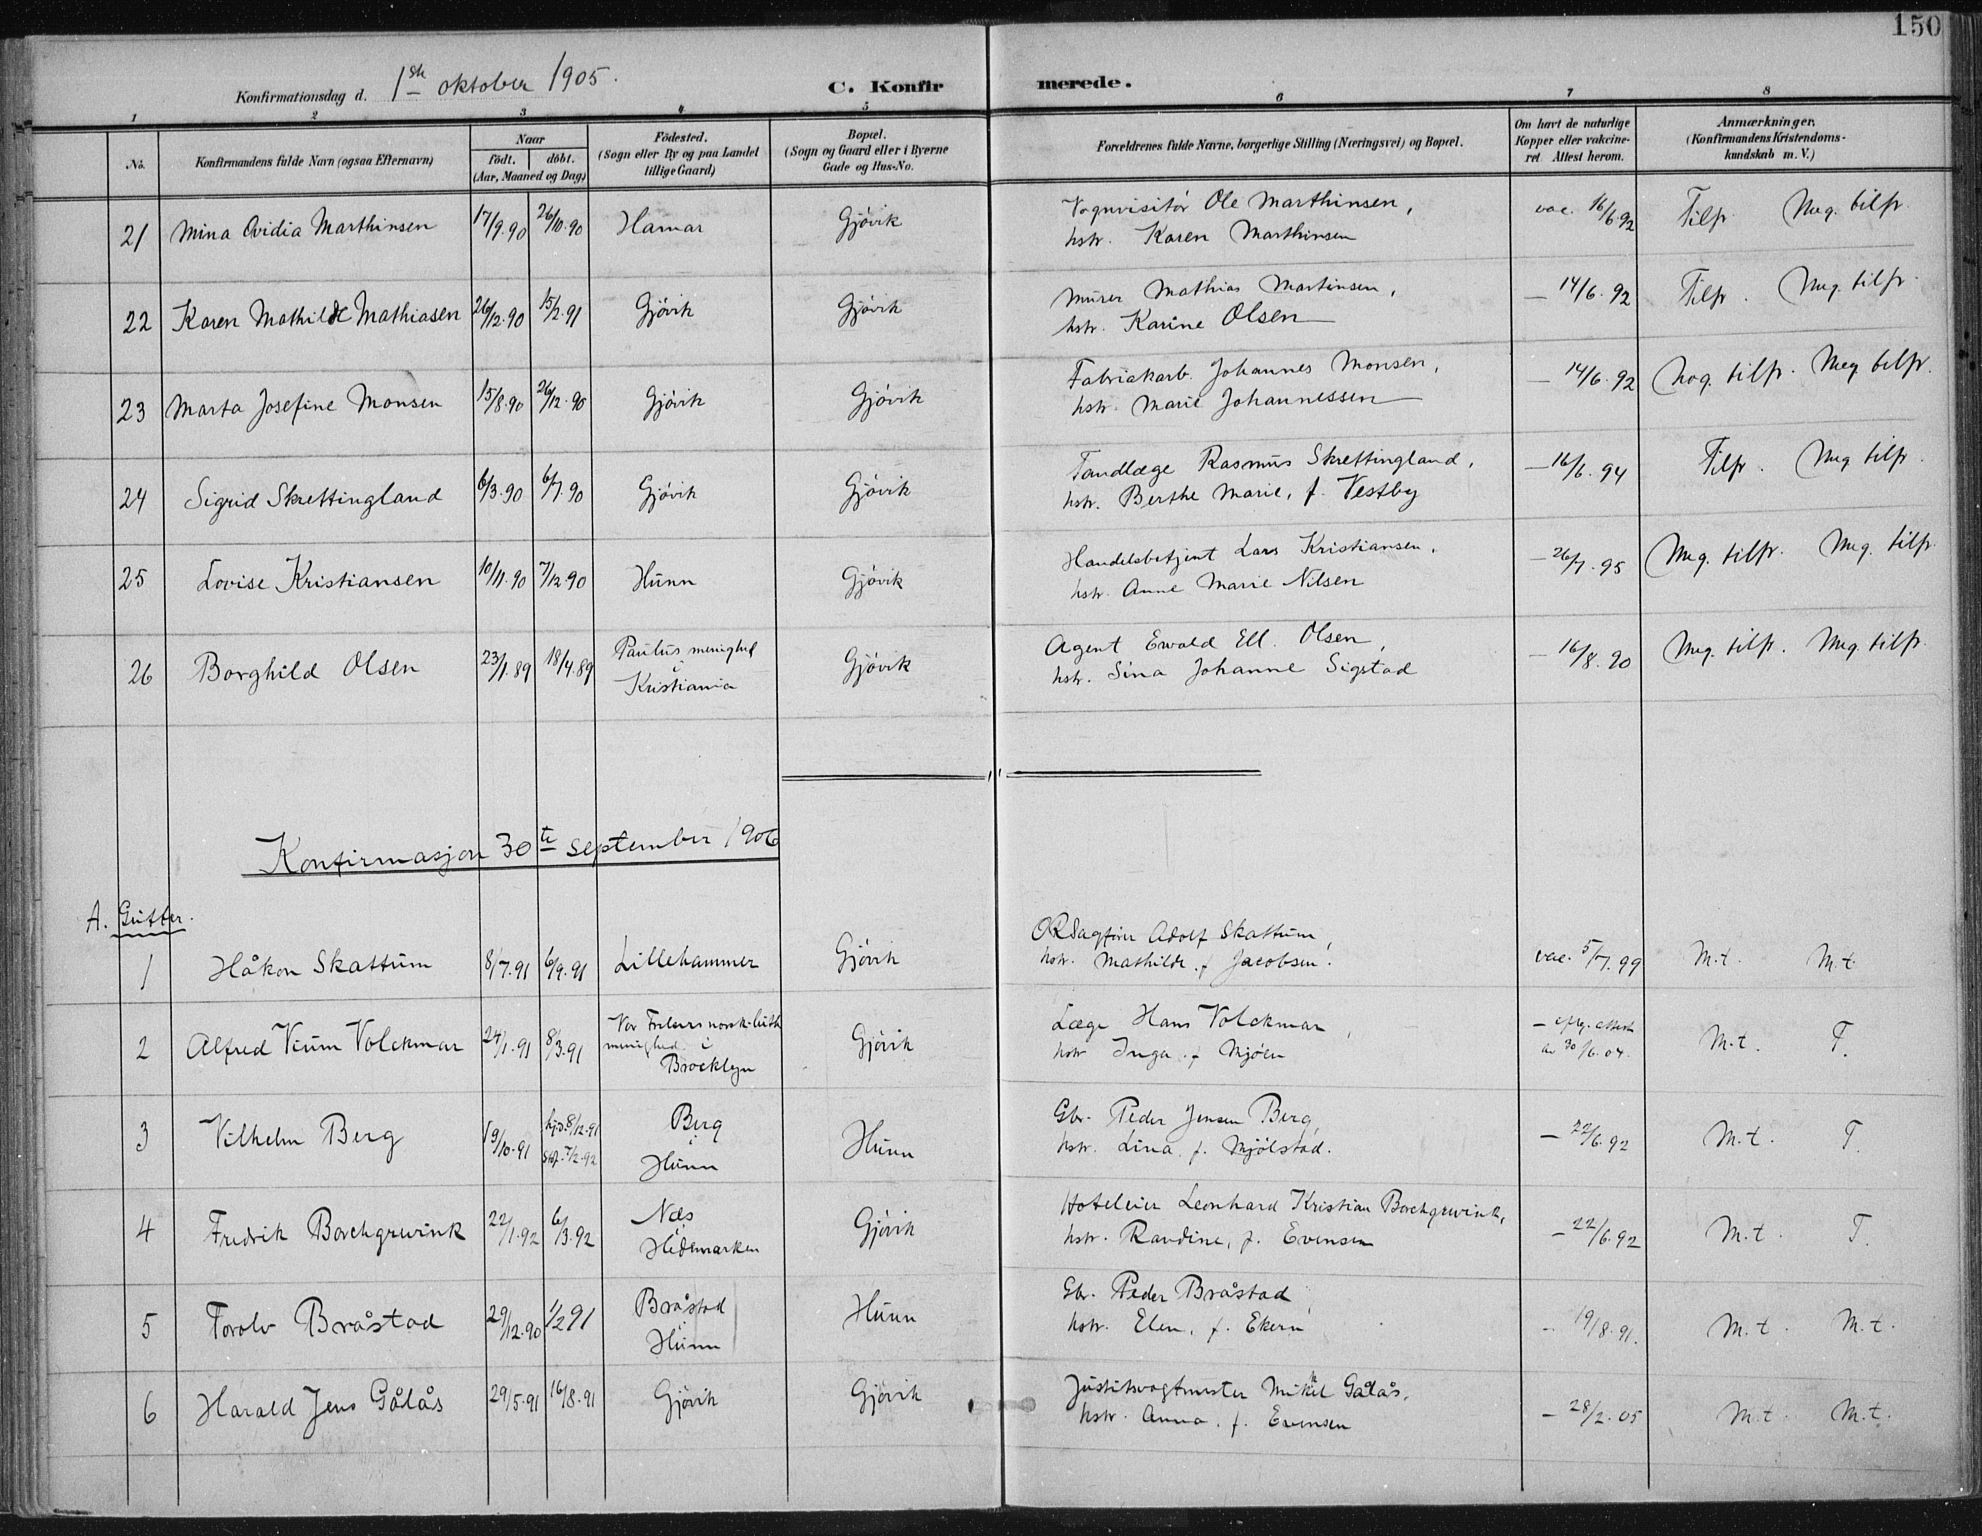 150
Konfirmationsdag d. 1ste oktober 1905.
C. Konfirmerede.
1 2 3 4 5 6 7 8
No.
Konfirmandens fulde Navn (ogsaa Efternavn)
Naar
födt. döbt.
(Aar, Maaned og Dag)
Födested.
(Sogn eller By og paa Landet
tillige Gaard)
Bopæl.
(Sogn og Gaard eller i Byerne
Gade og Hus-No.
Forældrenes fulde Navne, borgerlige Stilling (Næringsvei) og Bopæl.
Om havt de naturlige
Kopper eller vakcine-
ret Attest herom.
Anmærkninger.
(Konfirmandens Kristendoms-
kundskab m. V.)
21 Mina Ovidia Marthinsen 17/9.90 26/10.90 Hamar Gjøvik Vognvisitør Ole Marthinsen, vac. 16/6.92 Tilfr. Meg. tilfr.
hstr. Karen Marthinsen
22 Karen Mathilde Mathiasen 26/12.90 15/2.91 Gjøvik Gjøvik Murer Mathias Martinsen, — 14/6.92 Tilfr. Meg. tilfr.
hstr. Karine Olsen
23 Marta Josefine Monsen 15/8.90 26/12.90 Gjøvik Gjøvik Fabrikarb. Johannes Monsen, — 14/6.92 Nog. tilfr. Meg tilfr.
hstr. Marie Johannessen
24 Sigrid Skrettingland 6/3.90 6/7.90 Gjøvik Gjøvik Tandlæge Rasmus Skrettingland, — 16/6.94 Tilfr. Meg tilfr.
hstr. Berthe Marie, f. Vestby
25 Lovise Kristiansen 10/11.90 7/12.90 Hunn Gjøvik Handelsbetjent Lars Kristiansen, — 26/7.95 Meg. tilfr. Meg. tilfr.
hstr. Anne Marie Nilsen
26 Borghild Olsen 23/1.89 18/4.89 Paulus menighed i Kristiania Gjøvik Agent Ewald Ell. Olsen, — 16/8.90 Meg. tilfr. Meg. tilfr.
hstr. Sina Johanne Sigstad
Konfirmasjon 30te september 1906
A. Gutter.
1 Håkon Skattum 8/7.91 6/9.91 Lillehammer Gjøvik ORSagfører Adolf Skattum, vac. 5/7.99 M.t. M.t
hstr. Mathilde f. Jacobsen.
2 Alfred Vium Volckmar 24/1.91 8/3.91 Vor Frelsers norsk-luth menighed i Brooklyn Gjøvik Læge Hans Volckmar, — efter attest M.t. T.
hstr Inga f. Mjøen av 30/6.04.
3 Vilhelm Berg 19/10.91 hjd. 8/12.91 Berg i Hunn Hunn Gbr. Peder Jensen Berg, — 22/6.92 M.t. T.
stf. 7/2.92 hstr. Lina f. Mjølstad.
4 Fredrik Borchgrewink 22/1.92 6/3.92 Næs i Hedemarken Gjøvik Hoteleier Leonhard Kristian Borchgrewink, — 22/6.92 M.t. T.
hstr. Randine, f. Evensen
5 Torolv Bråstad 29/12.90 1/2 91 Bråstad i Hunn Hunn Gbr. Peder Bråstad, — 19/8.91. M.t. M.t.
hstr. Elen, f. Ekern
6 Harald Jens Gålås 29/5.91 16/8.91 Gjøvik Gjøvik Justitsvagtmester Mikel Gålås, — 28/2.05 M.t. M.t.
hstr. Anna f. Evensen